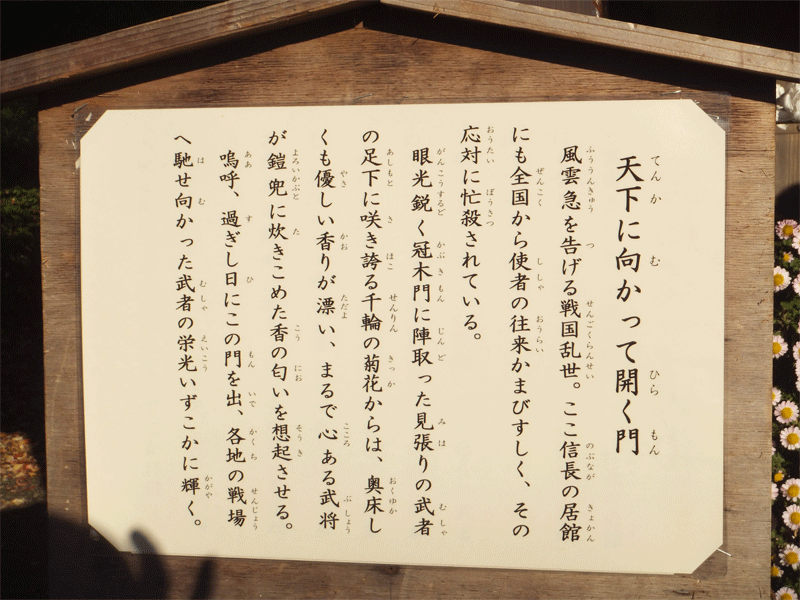 天下に向かって開く門
風雲急を告げる戦国乱世。ここ信長の居館
にも全国から使者の往来かまびすしく、その
応対に忙殺されている。
眼光鋭く冠木門に陣取った見張りの武者
の足下に咲き誇る千輪の菊花からは、奥床し
くも優しい香りが漂い、まるで心ある武将
が鎧兜に炊きこめた香の匂いを想起させる。
嗚呼、過ぎし日にこの門を出、各地の戦場
へ馳せ向かった武者の栄光いずこかに輝く。